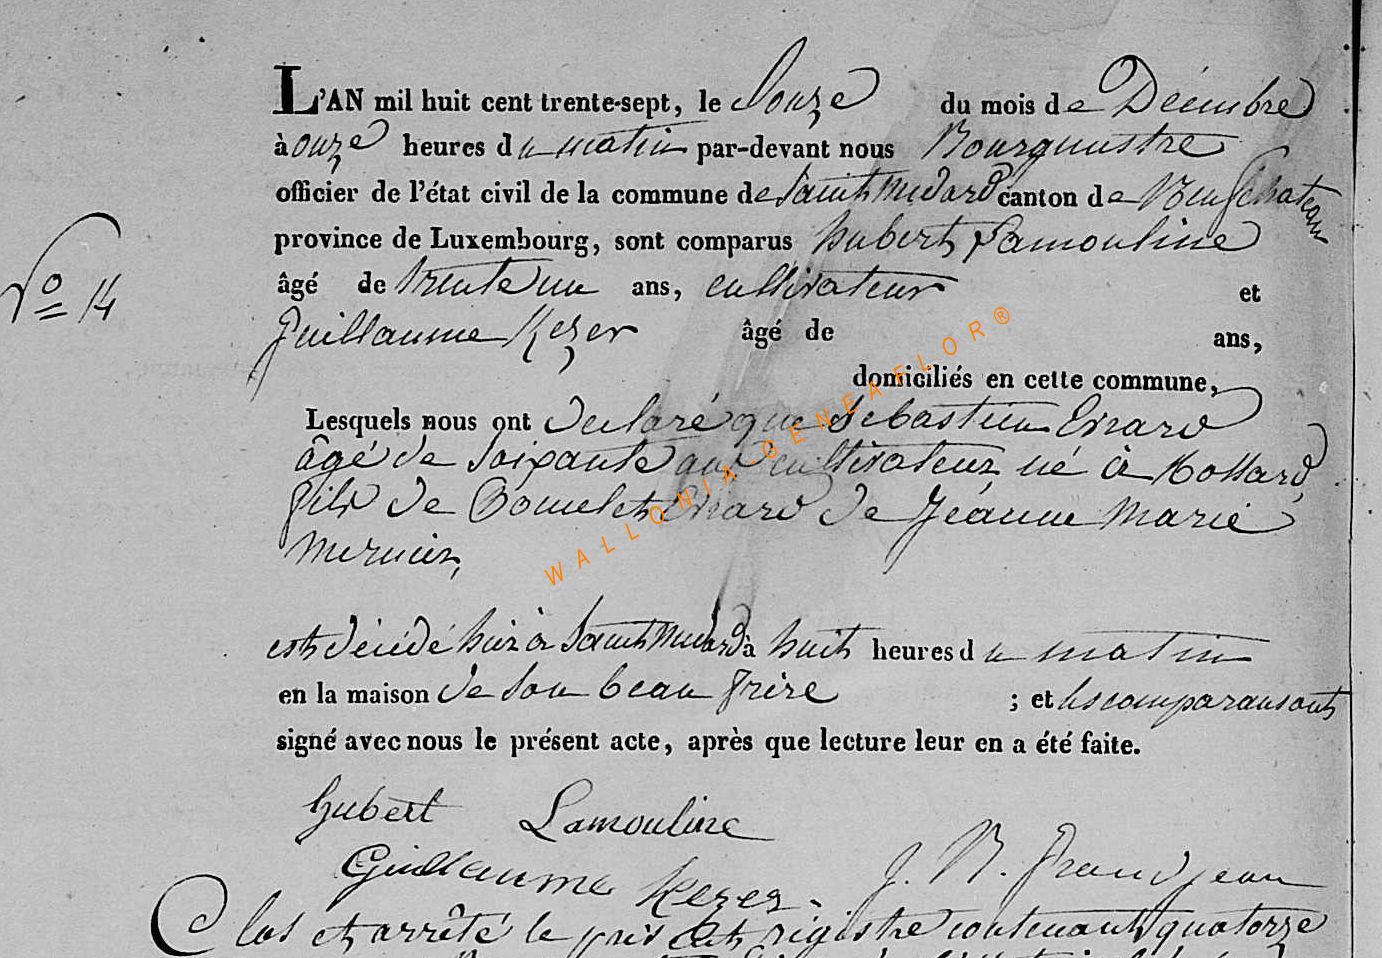 L'AN mil huit cent trente-sept, le Douze du mois de Décembre
à onze heures du matin par-devant nous Bourgmestre
officier de l'état civil de la commune de Saint Médard canton de Neufchateau
province de Luxembourg, sont comparus hubert Lamouline
âgé de trente un ans, cultivateur et
Guillaume Kezer âgé de ans,
domiciliés en cette commune,
Lesquels nous ont declaré que Sebastien Evrard
âgé de soixante ans cultivateur, né à
fils de et Evrard de Jeanne Marie
Mernier,
N° 14
est décédé hier à Saint Médard à huit heures du matin
en la maison de son beau frère ; et les comparans ont
signé avec nous le présent acte, après que lecture leur en a été faite.
Hubert Lamouline
Guillaume Kezer. J. N. Grandjean
Clos et arrêté le registre contenant quatorze
WALLONIA GENEAFLOR®